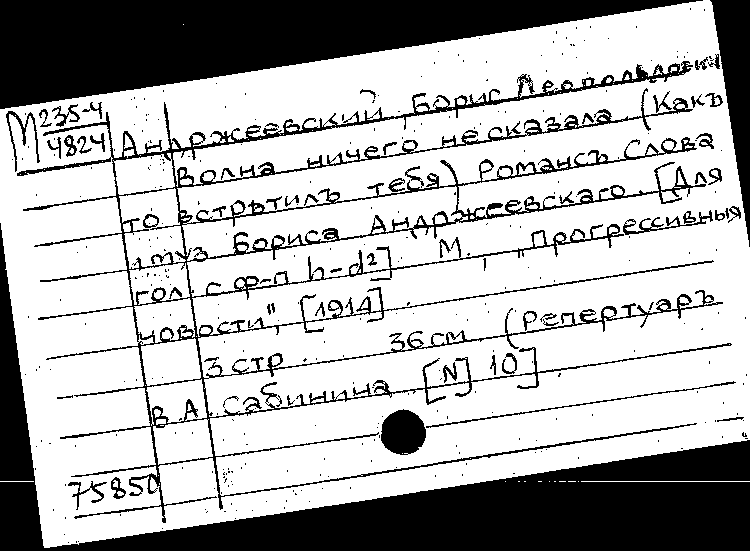 М 235-4
4824
Андржеевский, Борис Леопольдович
Волна ничего не сказала (Какъ
то встрѣтилъ тебя) Романсъ Слова
и муз Бориса Андржеевскаго. [Для
гол. с ф-п h-d²] М., "Прогрессивныя
новости", [1914].
3 стр. 36 см. (Репертуаръ
В. А. Сабинина [N] 10].
75850